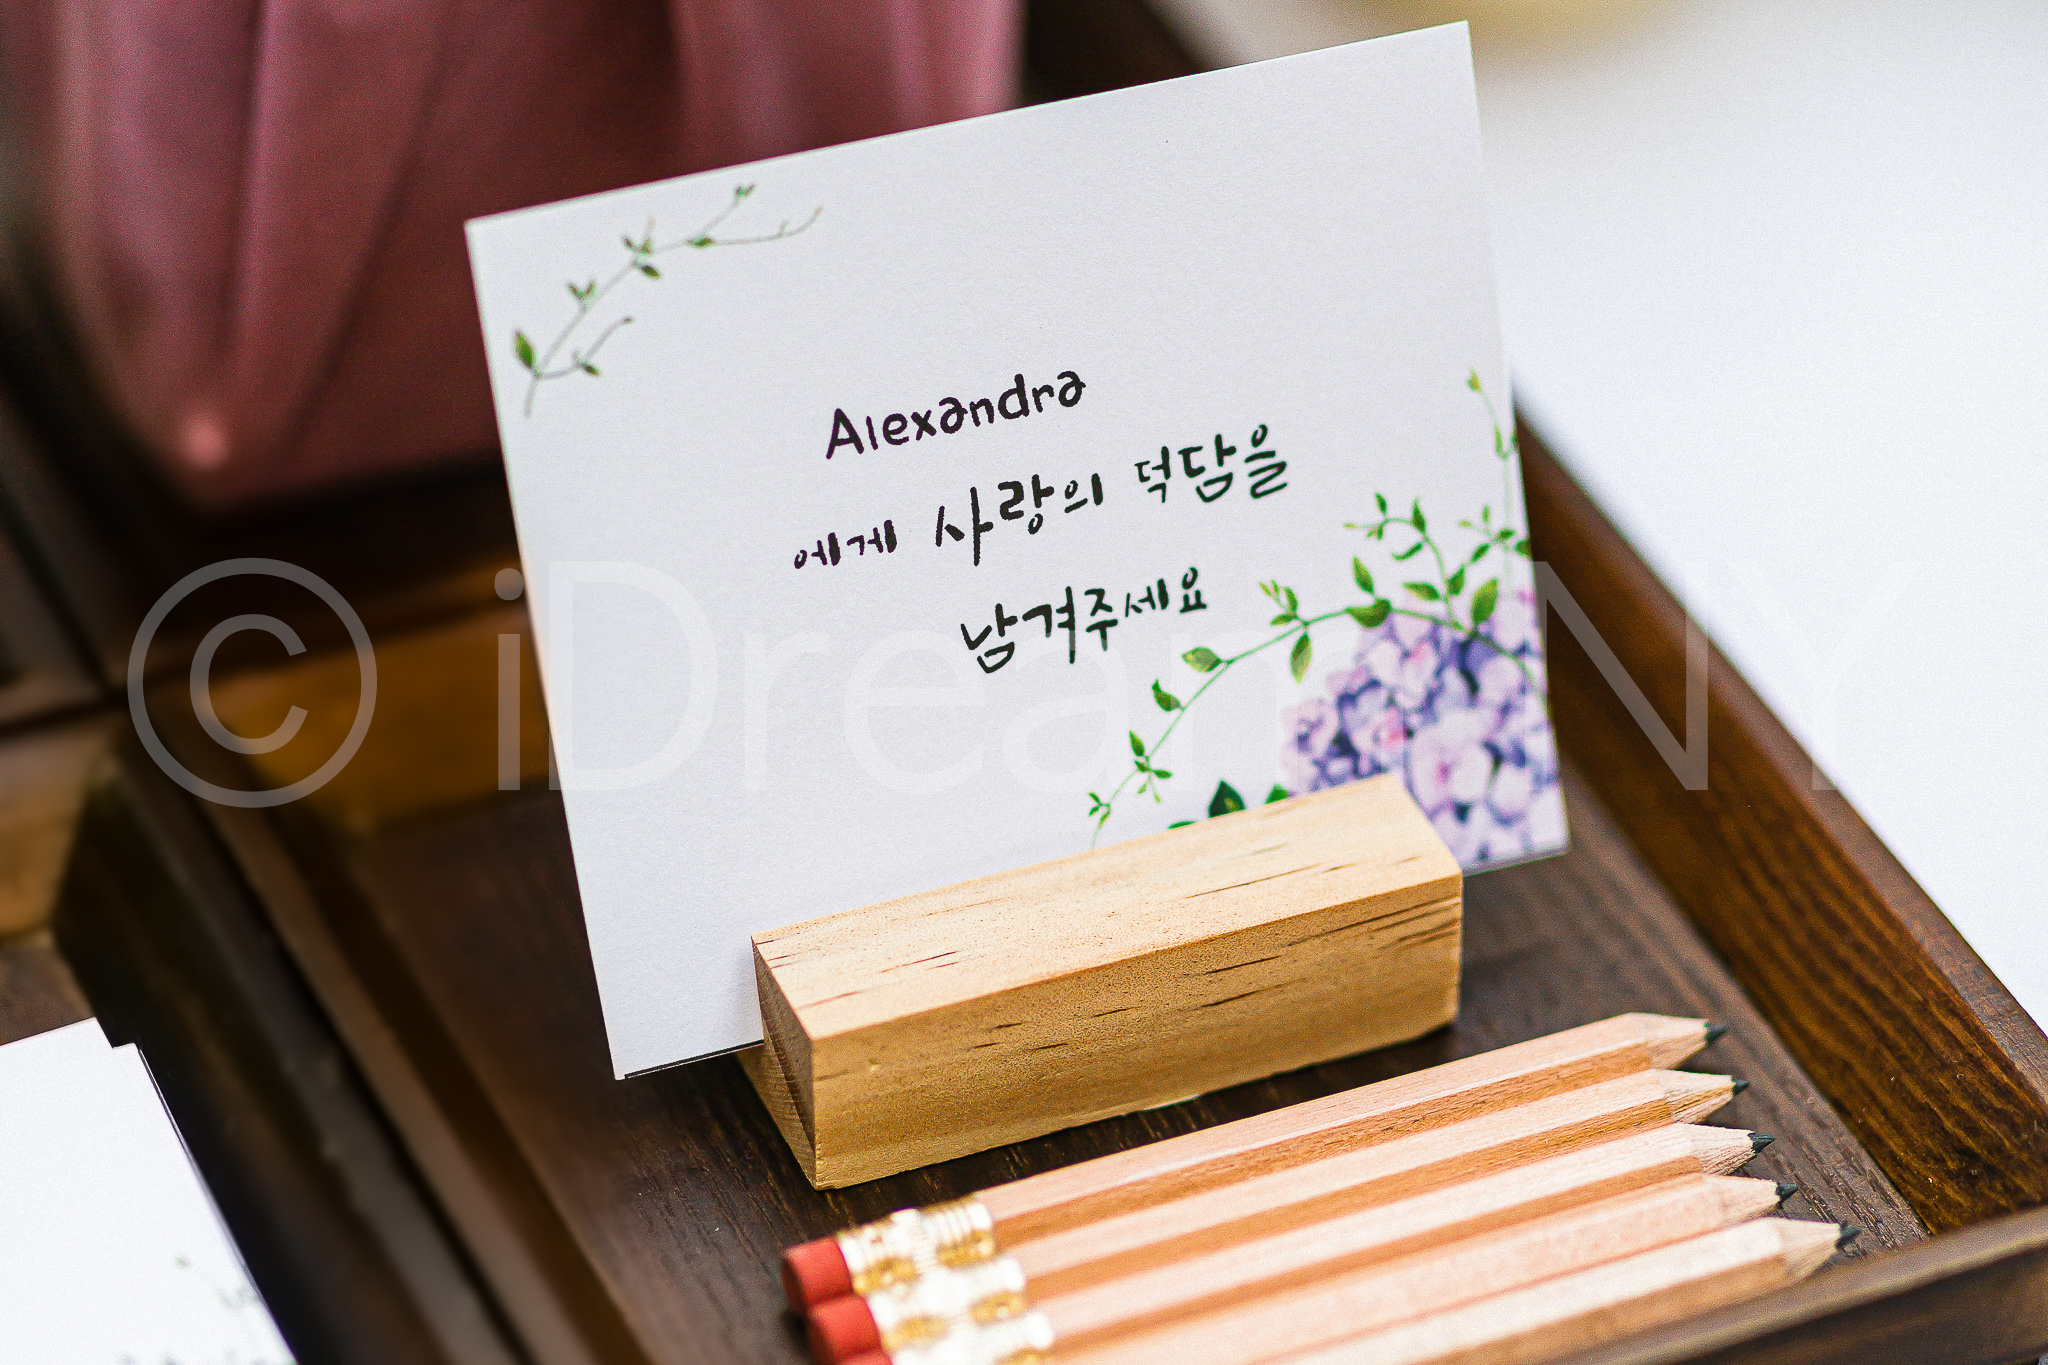 Alexandra
에게 사랑의 덕담을
남겨주세요
© iDreamNY